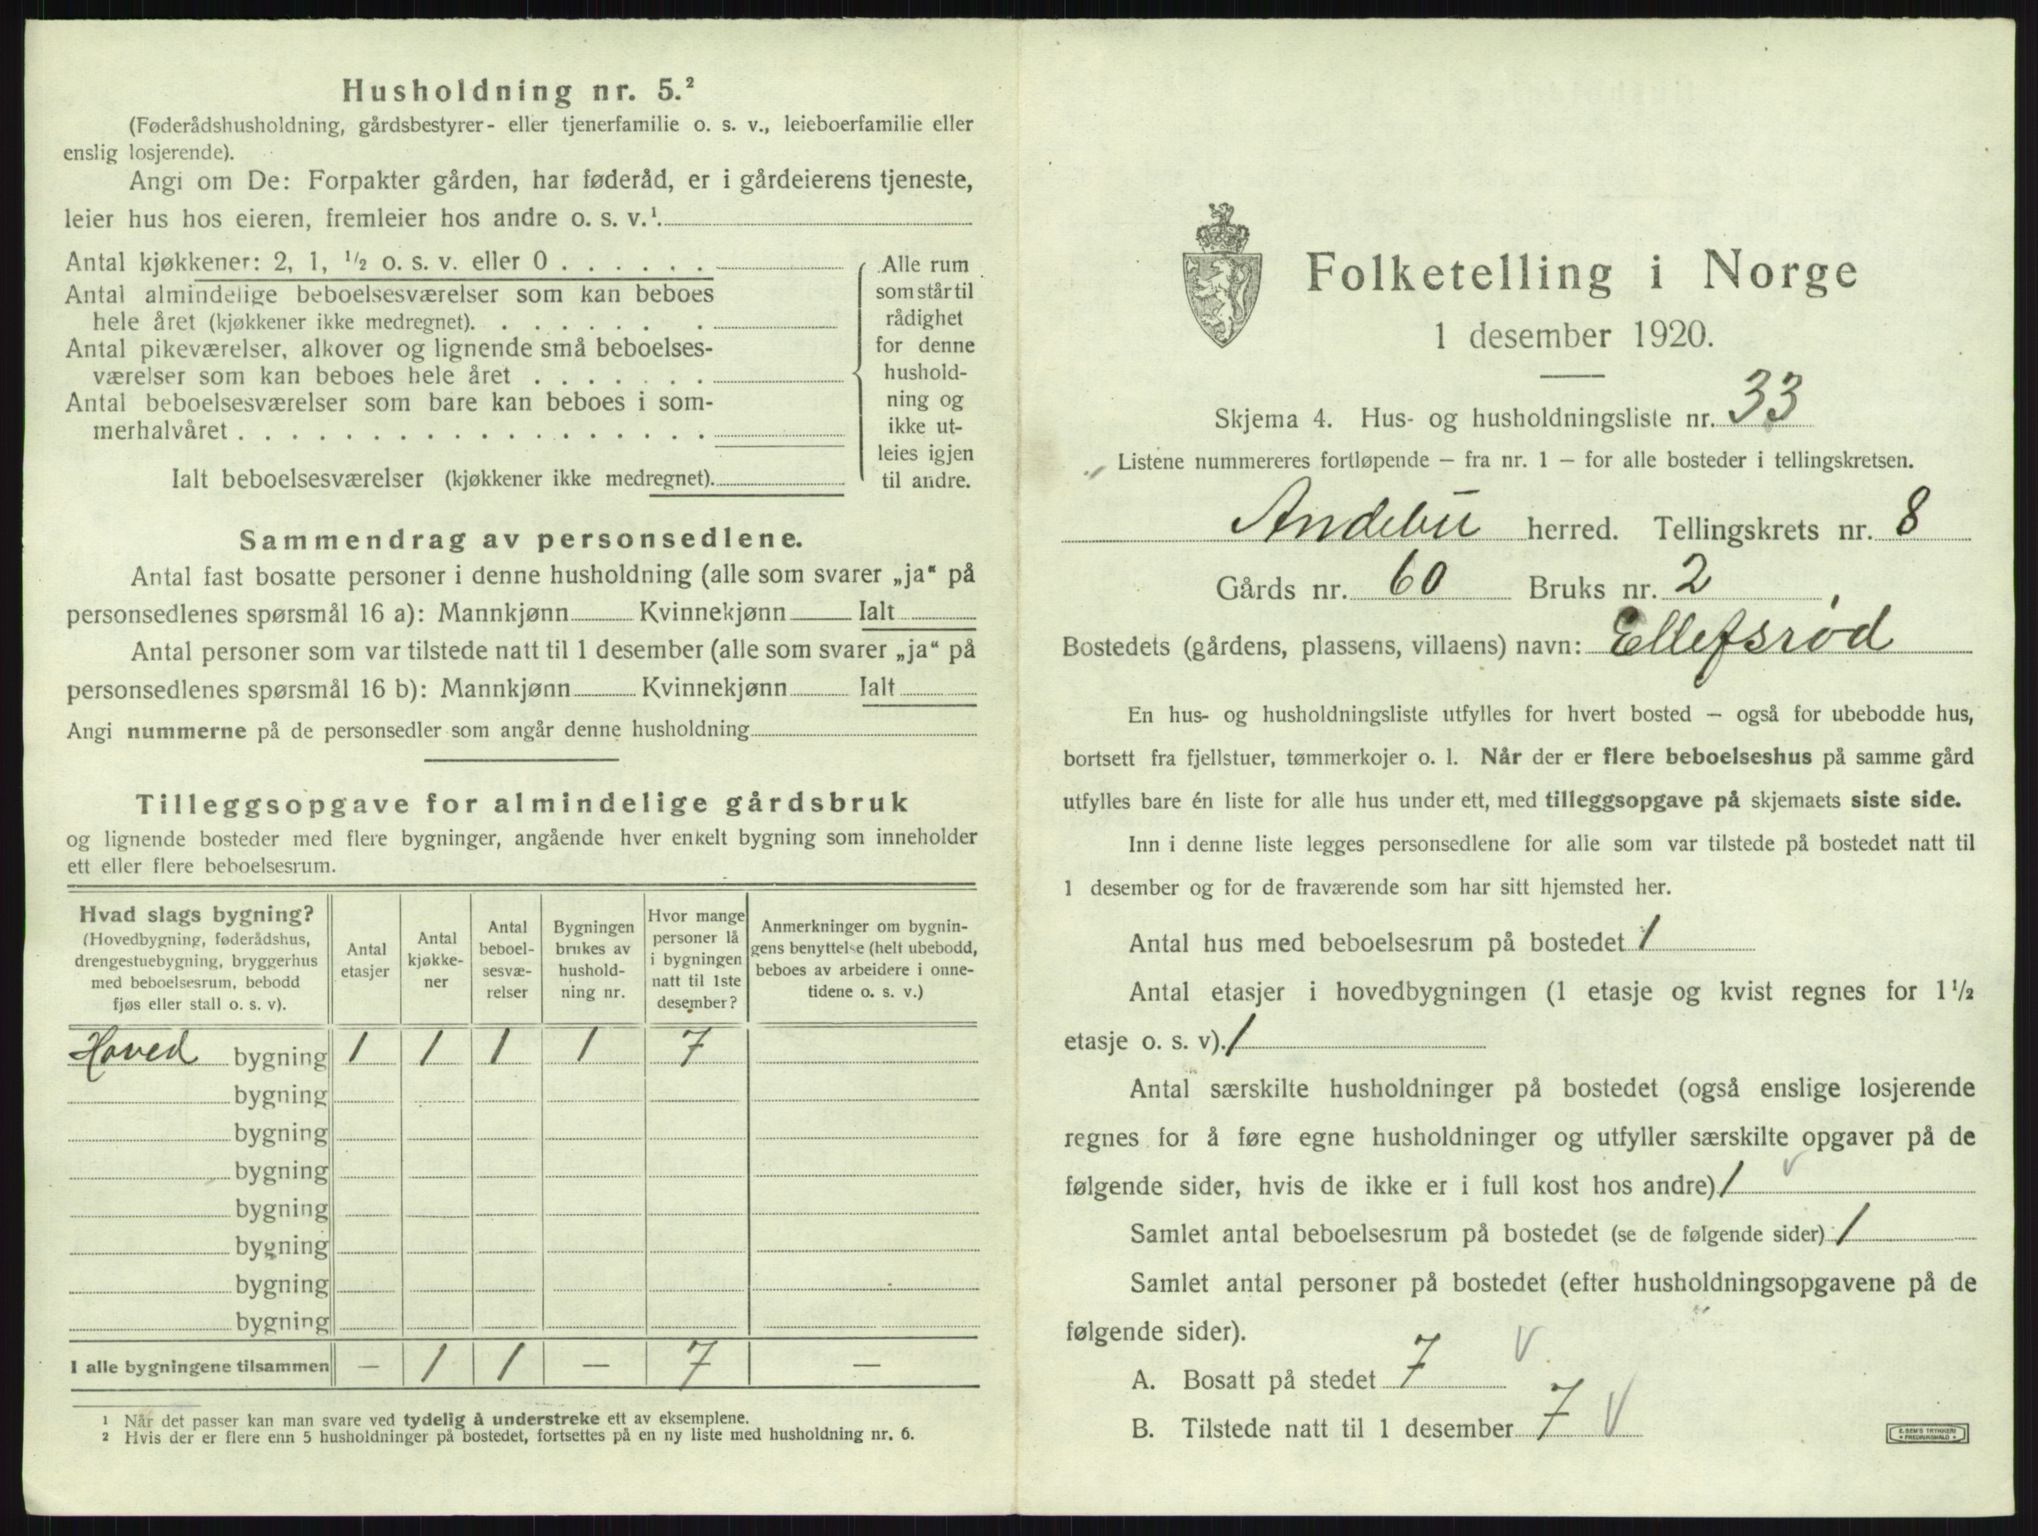 Husholdning nr. 5.²
(Føderådshusholdning, gårdsbestyrer- eller tjenerfamilie o. s. v., leieboerfamilie eller
enslig losjerende).
Angi om De: Forpakter gården, har føderåd, er i gårdeierens tjeneste,
leier hus hos eieren, fremleier hos andre o. s. v.¹.
Antal kjøkkener: 2, 1, ½ o. s. v. eller 0 . . . . . .
Antal almindelige beboelsesværelser som kan beboes
hele året (kjøkkener ikke medregnet). . . . . . . .
Antal pikeværelser, alkover og lignende små beboelses-
værelser som kan beboes hele året . . . . . . .
Antal beboelsesværelser som bare kan beboes i som-
merhalvåret . . . . . . . . . . . . . . . . . .
Ialt beboelsesværelser (kjøkkener ikke medregnet).
Alle rum
som står til
rådighet
for denne
hushold-
ning og
ikke ut-
leies igjen
til andre.
Sammendrag av personsedlene.
Antal fast bosatte personer i denne husholdning (alle som svarer „ja“ på
personsedlenes spørsmål 16 a): Mannkjønn Kvinnekjønn Ialt
Antal personer som var tilstede natt til 1 desember (alle som svarer „ja“ på
personsedlenes spørsmål 16 b): Mannkjønn Kvinnekjønn Ialt
Angi nummerne på de personsedler som angår denne husholdning
Tilleggsopgave for almindelige gårdsbruk
og lignende bosteder med flere bygninger, angående hver enkelt bygning som inneholder
ett eller flere beboelsesrum.
Hvad slags bygning?
(Hovedbygning, føderådshus,
drengestuebygning, bryggerhus
med beboelsesrum, bebodd
fjøs eller stall o. s. v).
Antal
etasjer
Antal
kjøkke-
ner
Antal
beboel-
sesvæ-
relser
Bygningen
brukes av
hushold-
ning nr.
Hvor mange
personer lå
i bygningen
natt til 1ste
desember?
Anmerkninger om bygnin-
gens benyttelse (helt ubebodd,
beboes av arbeidere i onne-
tidene o. s. v.)
Hoved bygning 1 1 1 1 7
bygning
bygning
bygning
bygning
bygning
bygning
bygning
I alle bygningene tilsammen — 1 1 — 7 —
¹ Når det passer kan man svare ved tydelig å understreke ett av eksemplene.
² Hvis der er flere enn 5 husholdninger på bostedet, fortsettes på en ny liste med husholdning nr. 6.
Folketelling i Norge
1 desember 1920.
Skjema 4. Hus- og husholdningsliste nr. 33
Listene nummereres fortløpende — fra nr. 1 — for alle bosteder i tellingskretsen.
Andebu herred. Tellingskrets nr. 8
Gårds nr. 60 Bruks nr. 2
Bostedets (gårdens, plassens, villaens) navn: Ellefsrød
En hus- og husholdningsliste utfylles for hvert bosted — også for ubebodde hus,
bortsett fra fjellstuer, tømmerkojer o. l. Når der er flere beboelseshus på samme gård
utfylles bare én liste for alle hus under ett, med tilleggsopgave på skjemaets siste side.
Inn i denne liste legges personsedlene for alle som var tilstede på bostedet natt til
1 desember og for de fraværende som har sitt hjemsted her.
Antal hus med beboelsesrum på bostedet 1
Antal etasjer i hovedbygningen (1 etasje og kvist regnes for 1½
etasje o. s. v). 1
Antal særskilte husholdninger på bostedet (også enslige losjerende
regnes for å føre egne husholdninger og utfyller særskilte opgaver på de
følgende sider, hvis de ikke er i full kost hos andre) 1 v
Samlet antal beboelsesrum på bostedet (se de følgende sider) 1
Samlet antal personer på bostedet (efter husholdningsopgavene på de
følgende sider).
A. Bosatt på stedet 7 v
B. Tilstede natt til 1 desember 7 v
E. SEM'S TRYKKERI
* FREDRIKSHALD *